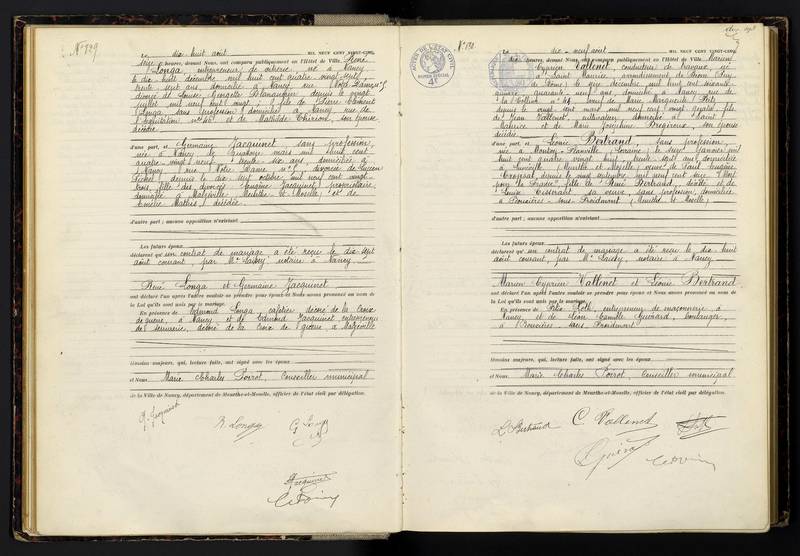 N° 729
Le dix huit août MIL NEUF CENT VINGT-CINQ,
seize heures, devant Nous, ont comparu publiquement en l'Hôtel de Ville, René
Longa, entrepreneur de né à Nancy
le dix huit décembre mil huit cent quatre vingt sept,
trente sept ans, domicilié à Nancy, rue
divorcé de Louise Henriette depuis le vingt
juillet mil neuf cent vingt, fils de Pierre Clément
Longa, sans profession, domicilié à Nancy rue de
l'Equitation n° et de Mathilde Thirion, son épouse
décédée
d'une part, et Germaine Jacquinet sans profession,
née à Nancy le quatorze mars mil huit cent
quatre vingt neuf, trente six ans, domiciliée à
Nancy rue Notre Dame n° divorcée de Lucien
depuis le dix sept octobre mil neuf cent vingt
trois, fille des divorcés Eugène Jacquinet, propriétaire,
domicilié à Malzéville, Meurthe et Moselle, et de
Emélie Mathis, décédée.
d'autre part; aucune opposition n'existant
Les futurs époux
déclarent qu'un contrat de mariage a été reçu le dix sept
août courant, par Me notaire à Nancy.
René Longa et Germaine Jacquinet
ont déclaré l'un après l'autre vouloir se prendre pour époux et Nous avons prononcé au nom de
la Loi qu'ils sont unis par le mariage.
En présence de Edmond Longa, cafetier, décoré de la Croix
de guerre, à Nancy, et de Edmond Jacquinet entrepreneur
de serrurerie, décoré de la Croix de guerre, à Malzéville
témoins majeurs, qui, lecture faite, ont signé avec les époux
et Nous, Marie Charles Poirot, Conseiller municipal
de la Ville de Nancy, département de Meurthe-et-Moselle, officier de l'état civil par délégation.
G. Jacquinet
R. Longa
E. Longa
Jacquinet
C. Poirot
N° 730
Le dix-neuf août MIL NEUF CENT VINGT-CINQ,
dix heures, devant Nous, ont comparu publiquement en l'Hôtel de Ville, Marien
Cyprien Vallenet conducteur de travaux, né
à Saint Maurice, arrondissement de Riom (Puy
de Dôme) le décembre mil huit cent soixante
quarante neuf ans, domicilié à Nancy, rue de
la Colline n° 44, veuf de Marie Marguerite
depuis le vingt sept mars mil neuf cent vingt quatre, fils
de Jean Vallenet, cultivateur, domicilié à Saint
Maurice et de Marie Joséphine son épouse
décédée
d'une part, et Léonie Bertrand, sans profession,
née à Lorraine, le seize janvier mil
huit cent quatre vingt huit, trente sept ans, domiciliée
à (Meurthe et Moselle), veuve de Paul Eugène
depuis le neuf septembre mil neuf cent seize "Mort
pour la France", fille de René Bertrand, décédé et de
Louise sa veuve, sans profession, domiciliée
à Bouxières-sous-Froidmont (Meurthe et Moselle)
d'autre part; aucune opposition n'existant
Les futurs époux
déclarent qu'un contrat de mariage a été reçu le dix huit
août courant, par Me notaire à Nancy.
Marien Cyprien Vallenet et Léonie Bertrand
ont déclaré l'un après l'autre vouloir se prendre pour époux et Nous avons prononcé au nom de
la Loi qu'ils sont unis par le mariage.
En présence de Félix entrepreneur de maçonnerie, à
Nancy, et de Léon Camille boulanger,
à Bouxières-sous-Froidmont
témoins majeurs, qui, lecture faite, ont signé avec les époux
et Nous, Marie Charles Poirot, Conseiller municipal
de la Ville de Nancy, département de Meurthe-et-Moselle, officier de l'état civil par délégation.
L. Bertrand
C. Vallenet
C. Poirot